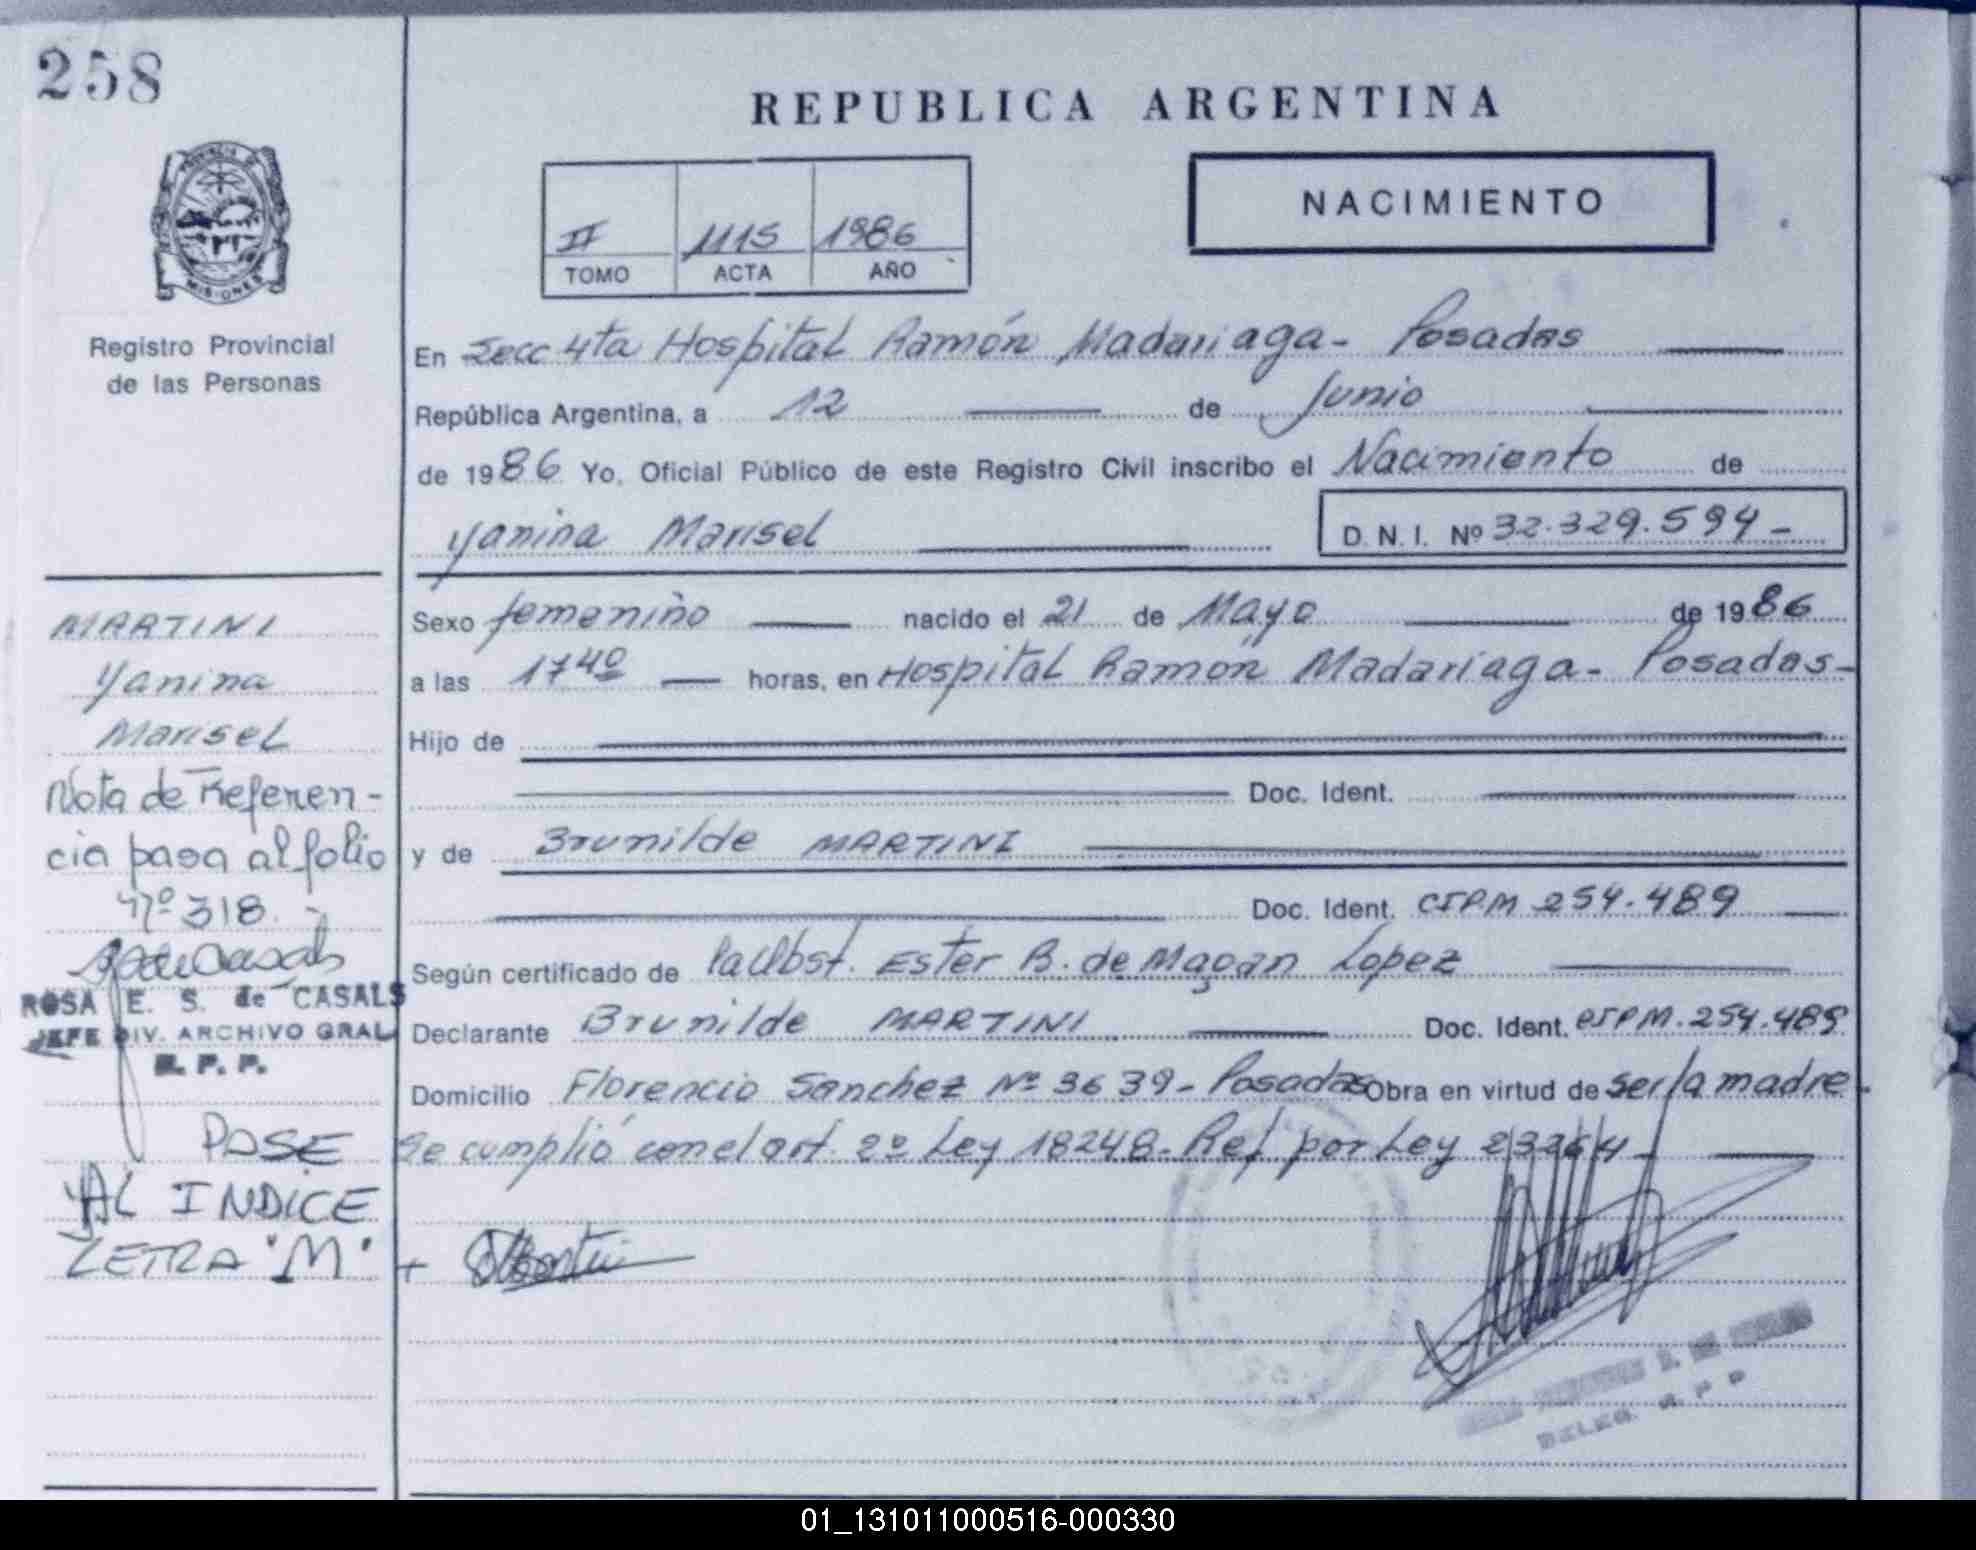 258
REPUBLICA ARGENTINA
PROVINCIA DE
MISIONES
Registro Provincial
de las Personas
II 1115 1986
TOMO ACTA AÑO
NACIMIENTO
En Secc 4ta Hospital Ramón Madariaga - Posadas
República Argentina, a 12 de Junio
de 1986 Yo, Oficial Público de este Registro Civil inscribo el Nacimiento de
Yanina Marisel
D. N. I. Nº 32.329.594-
MARTINI
Yanina
Marisel
Nota de Referen-
cia pasa al folio
Nº 318.-
ROSA E. S. de CASALS
JEFE DIV. ARCHIVO GRAL
R. P. P.
PASE
AL INDICE
LETRA "M"
Sexo femenino nacido el 21 de Mayo de 1986
a las 17 40 horas, en Hospital Ramón Madariaga - Posadas-
Hijo de
Doc. Ident.
y de Brunilde MARTINI
Doc. Ident. CIPM 254.489
Según certificado de Ester B. de Lopez
Declarante Brunilde MARTINI Doc. Ident. CIPM.254.489
Domicilio Florencio Sanchez Nº 3639- Posadas Obra en virtud de ser la madre-
Se cumplió con el art. 2º Ley 18248- Ref por Ley 23264-
DELEG. R. P. P
01_131011000516-000330